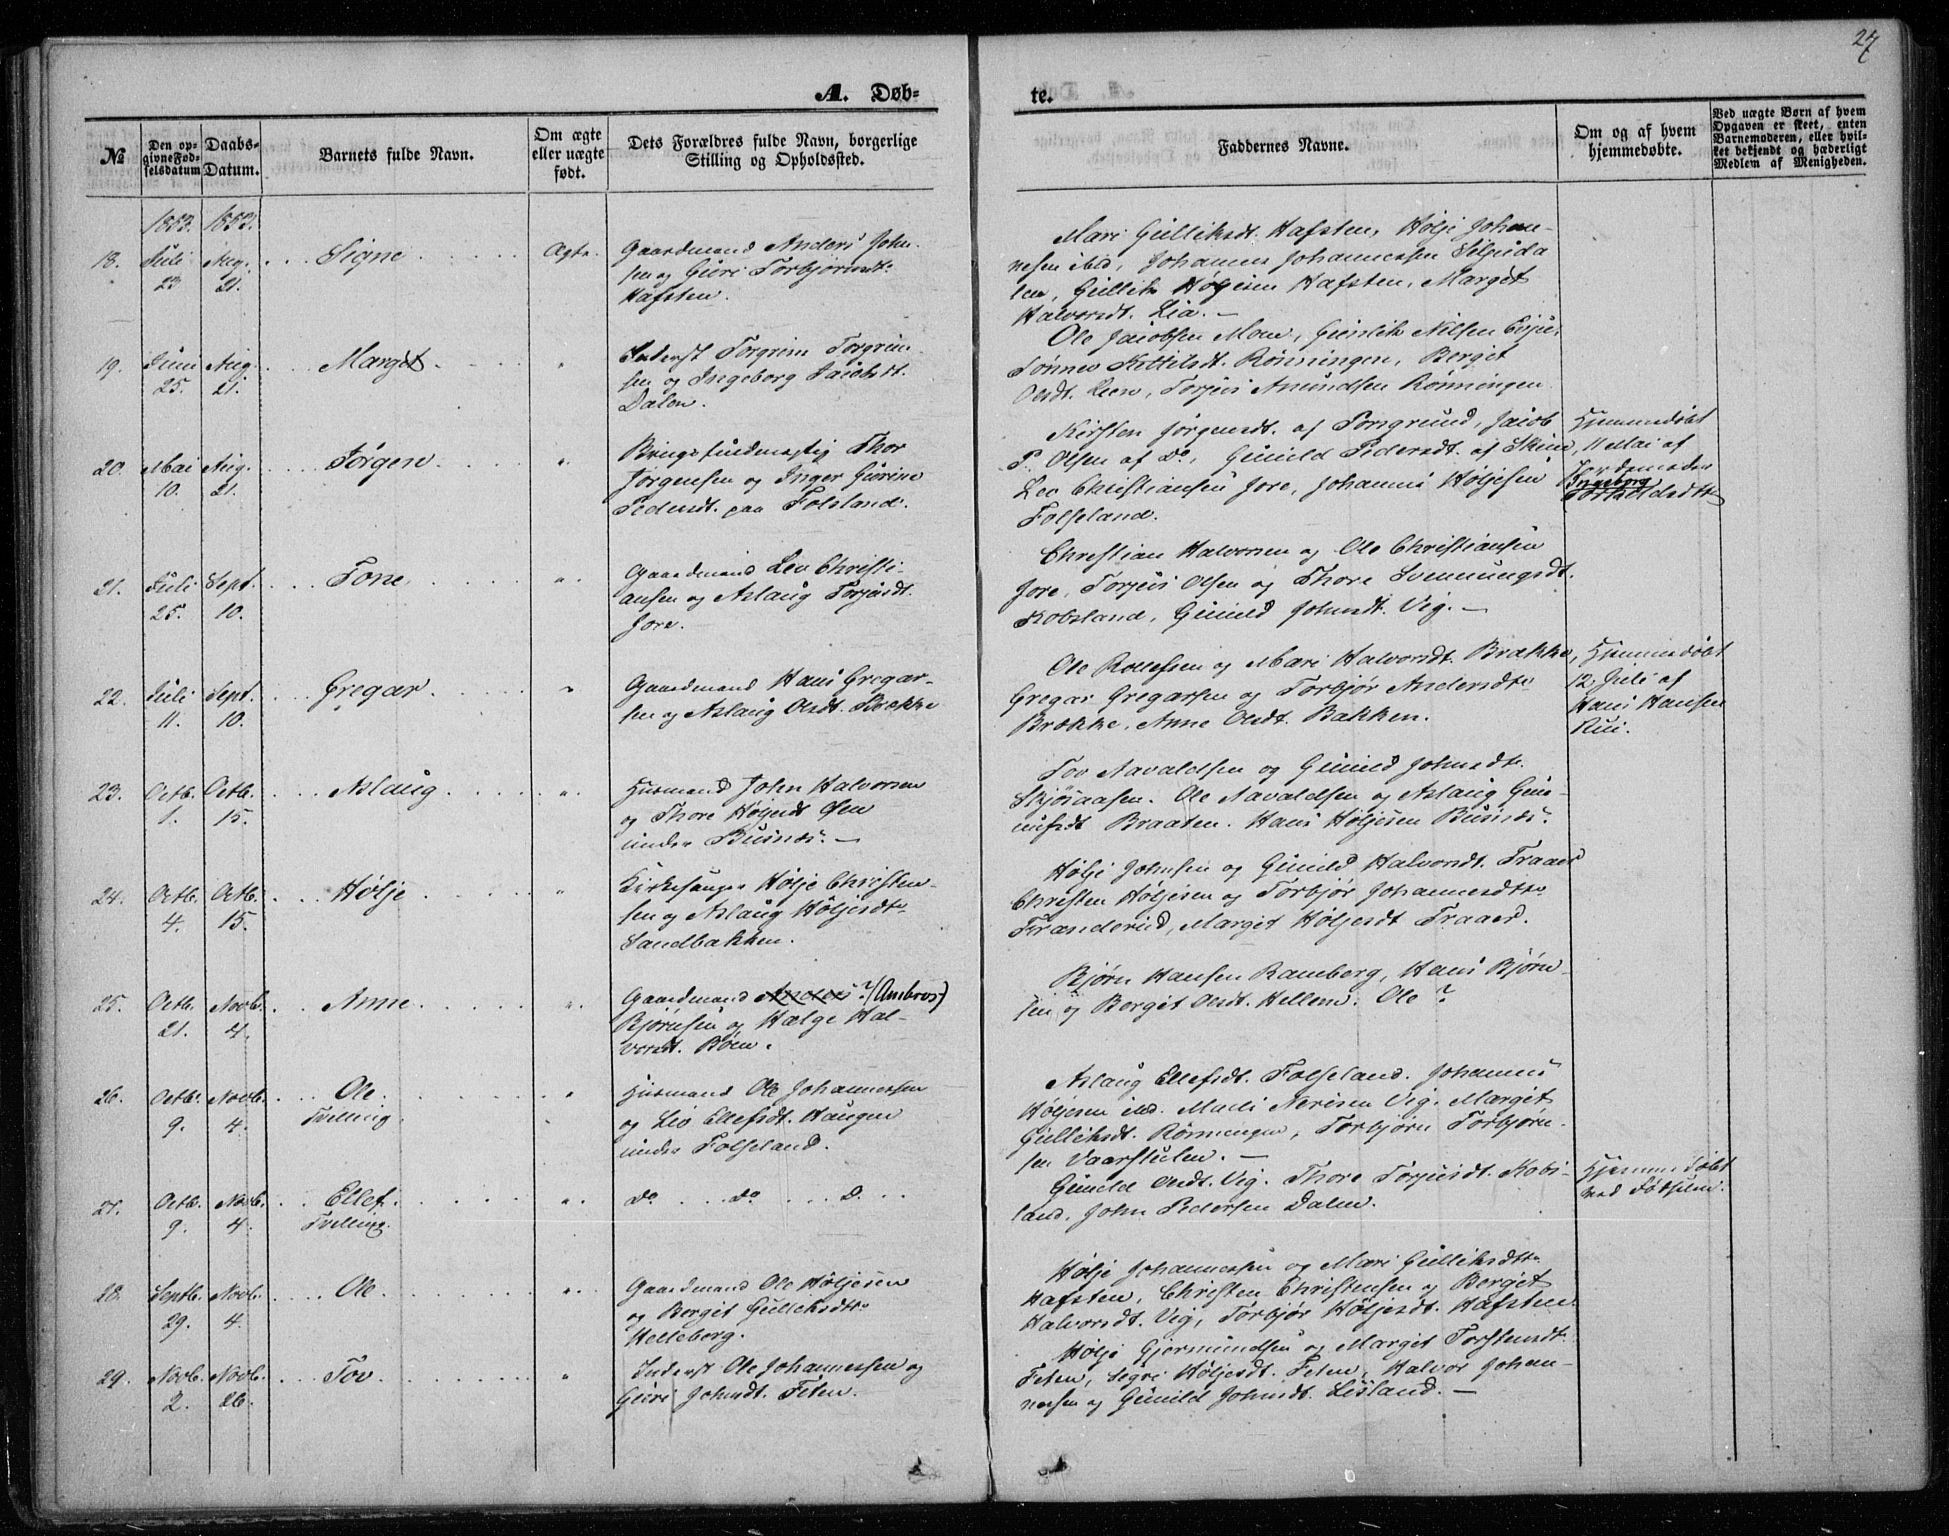 27
A. Døb-
te.
№
Den op-
givne Fød-
selsdatum
Daabs-
Datum.
Barnets fulde Navn.
Om ægte
eller uægte
født.
Dets Forældres fulde Navn, borgerlige
Stilling og Opholdssted.
Faddernes Navne.
Om og af hvem
hjemmedøbte.
Ved uægte Børn af hvem
Opgaven er skeet, enten
Barnemoderen, eller hvil-
ket bekjendt og hæderligt
Medlem af Menigheden.
1853. 1853.
18. Juli 23 Aug. 21. Signe Ægte.
Gaardmand Anders John-
sen og Guri Torbjørnsdt.
Hafsten.
Mari Gulliksdt. Hafsten, Hølje Johan-
nesen ibid, Johannes Johannessen
Gullik Høljesen Hafsten, Margit
Halvorsdt. Lia. —
19. Juni 25. Aug. 21. Margit "
Inderst Torgrim Torgrim-
sen og Ingeborg Jacobsdt.
Dalen.
Ole Jacobsen Moen, Gunlik Nilsen Evju,
Tønnes Kettilsdt. Rønningen, Berget
Olsdt. Leen, Torjus Amundsen Rønningen.
20. Mai 10. Aug. 21. Jørgen "
Brugsfuldmægtig Thor
Jørgensen og Inger Gurine
Pedersdt. paa Folsland.
Kirsten Jørgensdt. af Porsgrund, Jacob
P. Olsen af Do, Gunild Pedersdt. af Skien,
Leo Christiansen Jore, Johannes Høljesen
Folseland.
Hjemmedøbt
11 Mai af
Jordemoder
Ingeborg
Torkoldsdtr
21. Juli 25. Sept. 10. Tone "
Gaardmand Leo Christi-
ansen og Aslaug Torjusdt.
Jore.
Christian Halvorsen og Ole Christiansen
Jore, Torjus Olsen og Thore Svenungsdt.
Kobsland, Gunild Johnsdt. Vig. —
22. Juli 11. Sept. 10. Gregar "
Gaardmand Hans Gregar-
sen og Aslaug Olsdt. Brække
Ole Rollefsen og Mari Halvorsdt. Brække,
Gregar Gregarsen og Torbjør Andersdtr
Brække, Anne Olsdt. Bakken.
Hjemmedøbt
12 Juli af
Hans Hansen
Rui.
23. Octb. 1. Octb. 15. Aslaug "
Husmand John Halvorsen
og Thore Høljesdt Øen
under Busnæs. —
Tov Aavaldsen og Gunild Johnsdt.
Skjøsaasen. Ole Aavaldsen og Aslaug Gun-
nufsdt Braaten. Hans Høljesen Busnæs.
24. Octb. 4. Octb. 15. Hølje "
Kirkesanger Hølje Christen-
sen og Aslaug Høljesdtr
Sandbakken.
Hølje Johnsen og Gunild Halvorsdt. Traaer
Christen Høljesen og Torbjør Johannesdtr
Frænderud, Margit Høljesdt Traaer.
25. Octb. 21. Novb. 4. Anne "
Gaardmand Anders? (Ambros)
Bjørnsen og Hælge Hal-
vorsdt. Bøen.
Bjørn Hansen Ramberg, Hans Bjørn-
sen og Berget Olsdt. Hellem. Ole ?
26. Octb. 9. Novb. 4. Ole. Tvilling. "
Husmand Ole Johannessen
og Liv Ellefsdt. Haugen
under Folseland.
Aslaug Ellefsdt. Folseland. Johannes
Høljesen ibd. Nerisen Vig. Margit
Gulliksdt. Rønningen, Torbjørn Torbjørn-
sen Vaarstulen. —
27. Octb. 9. Novb. 4. Ellef. Tvilling. "
do ... do ... D. ..
Gunild Olsdt. Vig. Thore Torjusdt. Kobs-
land. John Pedersen Dalen.
Hjemmedøbt
ved Fødselen.
28. Septb. 29. Novb. 4. Ole. "
Gaardmand Ole Høljesen
og Berget Gulliksdtr
Helleberg.
Hølje Johannessen og Mari Gulliksdtr
Hafsten, Christen Christensen og Berget
Halvorsdt. Vig, Torbjør Høljesdt. Hafsten.
29. Novb. 2. Novb. 26. Tov. "
Inderst Ole Johannessen og
Guri Johnsdt. Feten.
Hølje Gjermundsen og Margit Torstensdt.
Feten, Sigri Høljesdt. Feten, Halvor Johan-
nessen og Gunild Johnsdt. Lisland. —